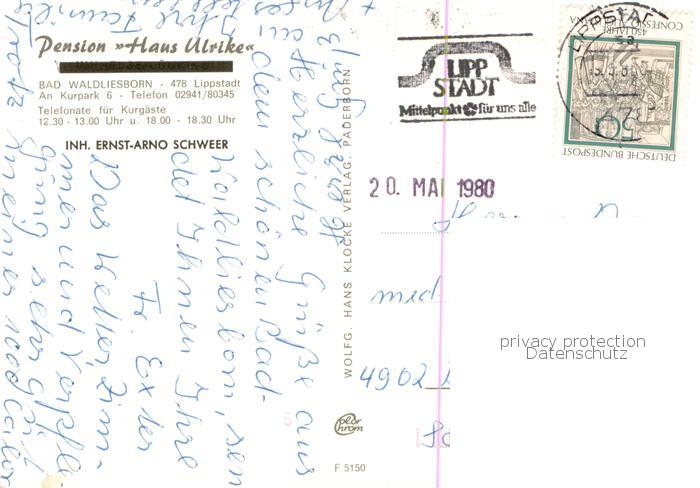 Pension »Haus Ulrike«
BAD WALDLIESBORN - 478 Lippstadt
An Kurpark 6 - Telefon 02941/80345
Telefonate für Kurgäste
12.30 - 13.00 Uhr u. 18.00 - 18.30 Uhr
INH. ERNST-ARNO SCHWEER
Herzliche Grüße aus
dem schönen Bad-
Waldliesborn, sen
det Ihnen Ihre
Fr. Exter
Das Wetter, Zim-
mer und Verpfle
gung sehr gut
Trotz meiner 1000 Calor
Ihre Familie
WOLFG. HANS KLOCKE VERLAG, PADERBORN
LIPP
STADT
Mittelpunkt für uns alle
LIPPSTADT
450 JAHRE
CONFESSIO AUGUSTANA
50
DEUTSCHE BUNDESPOST
20. MAI 1980
med.
4902
privacy protection
Datenschutz
F 5150